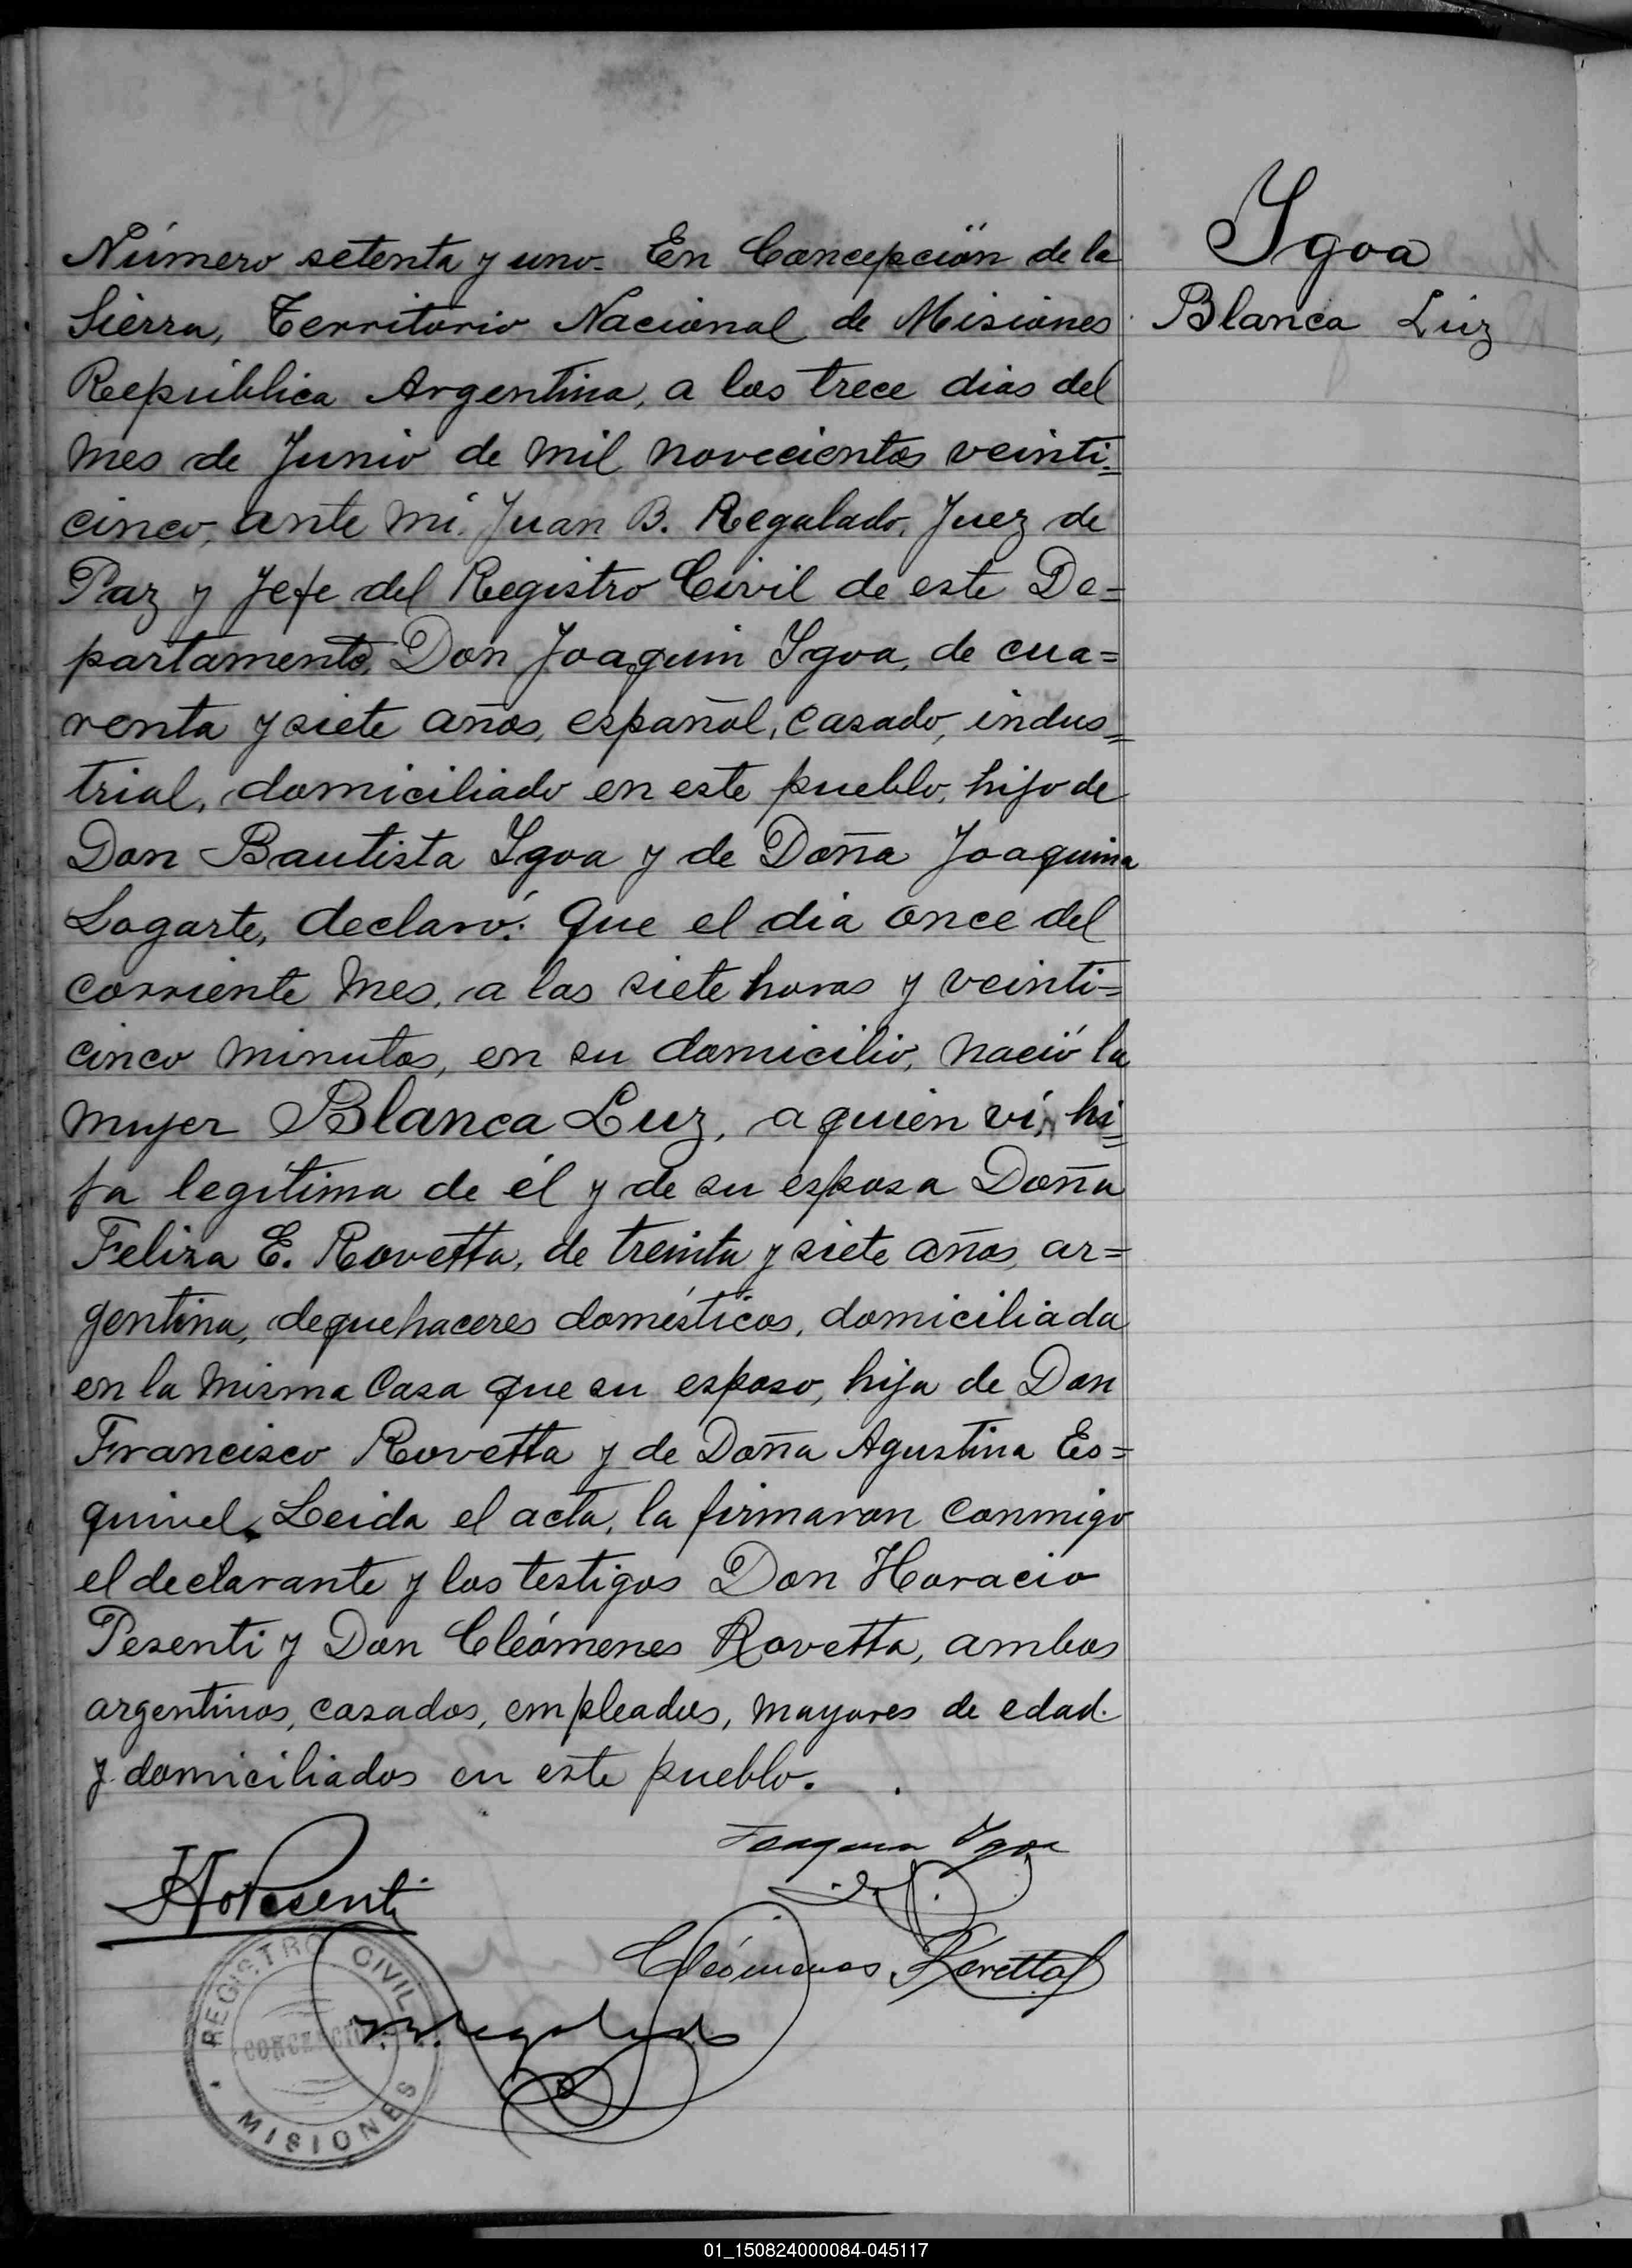 Ygoa
Blanca Luz
Número setenta y uno. En Concepción de la
Sierra, Territorio Nacional de Misiones
República Argentina, a los trece dias del
mes de Junio de mil novecientos veinti=
cinco, ante mí. Juan B. Regalado, Juez de
Paz y Jefe del Registro Civil de este De=
partamento, Don Joaquin Ygoa, de cua=
renta y siete años, español, casado, indus=
trial, domiciliado en este pueblo, hijo de
Don Bautista Ygoa y de Doña Joaquina
Lagarte, declaró: Que el dia once del
corriente mes, a las siete horas y veinti=
cinco minutos, en su domicilio, nació la
mujer Blanca Luz, a quien ví, hi=
ja legítima de él y de su esposa Doña
Feliza E. Rovetta, de treinta y siete años, ar=
gentina, dequehaceres domésticos, domiciliada
en la misma Casa que su esposo, hija de Don
Francisco Rovetta y de Doña Agustina Es=
quivel. Leida el acta, la firmaron conmigo
el declarante y los testigos Don Horacio
Pesenti y Don Cleómenes Rovetta, ambos
argentinos, casados, empleados, mayores de edad.
y domiciliados en este pueblo.
Joaquin Ygoa
Ho Pesenti
Cleómenes Rovetta
Regalado
REGISTRO CIVIL
CONCEPCION
MISIONES
01_150824000084-045117